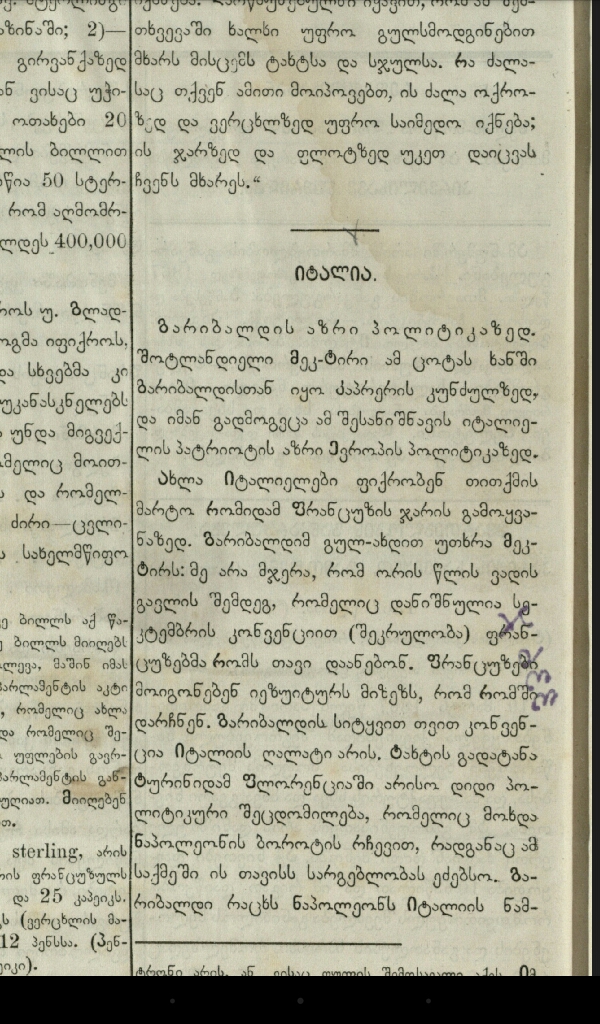 აზინაში; 2)—
გირვანქაზედ
ან ვისაც უჭი-
ოთახები 20
ლის ბილლით
წია 50 სტერ-
რომ აღმომრ-
ლდეს 400,000
როს უ. გლად-
ოგმა იფიქროს,
და სხვებმა კი
უკანასკნელებს
უნდა მიგვექ-
მელიც მოით-
და რომელ-
ძირი—ცვლი-
ს სახელმწიფო
ე ბილლს აქ წა-
უ ბილლს მიიღებს
ლევა, მაშინ იმას
პარლამენტის აკტი
, რომელიც ახლა
და რომელიც შე-
უფლების გავრ-
პარლამენტის გან-
უღიათ. მიიღებენ
თ.
sterling, არის
რის ფრანცუზულს
და 25 კაპეიკს.
ს (ვერცხლის მა-
12 პენსსა. (პენ-
ეიკი).
თხვევაში ხალხი უფრო გულსმოდგინებით
მხარს მისცემს ტახტსა და სჯულსა. რა ძალა-
საც თქვენ ამითი მოიპოვებთ, ის ძალა ოქრო-
ზედ და ვერცხლზედ უფრო საიმედო იქნება;
ის ჯარზედ და ფლოტზედ უკეთ დაიცვას
ჩვენს მხარეს.“
ᲘᲢᲐᲚᲘᲐ.
გარიბალდის აზრი პოლიტიკაზედ.
შოტლანდიელი მეკ-ტირი ამ ცოტას ხანში
გარიბალდისთან იყო კაპრერის კუნძულზედ,
და იმან გადმოგვცა ამ შესანიშნავის იტალიე-
ლის პატრიოტის აზრი ევროპის პოლიტიკაზედ.
ახლა იტალიელები ფიქრობენ თითქმის
მარტო რომიდამ ფრანცუზის ჯარის გამოყვა-
ნაზედ. გარიბალდიმ გულ-ახდით უთხრა მეკ-
ტირს: მე არა მჯერა, რომ ორის წლის ვადის
გავლის შემდეგ, რომელიც დანიშნულია სე-
კტემბრის კონვენციით (შეკრულობა) ფრან-
ცუზებმა რომს თავი დაანებონ. ფრანცუზები
მოიგონებენ იეზუიტურს მიზეზს, რომ რომში
დარჩნენ. გარიბალდის სიტყვით თვით კონვენ-
ცია იტალიის ღალატი არის. ტახტის გადატანა
ტურინიდამ ფლორენციაში არისო დიდი პო-
ლიტიკური შეცდომილება, რომელიც მოხდა
ნაპოლეონის ბოროტის რჩევით, რადგანაც ამ
საქმეში ის თავისს სარგებლობას ეძებსო. გა-
რიბალდი რაცხს ნაპოლეონს იტალიის წამ-